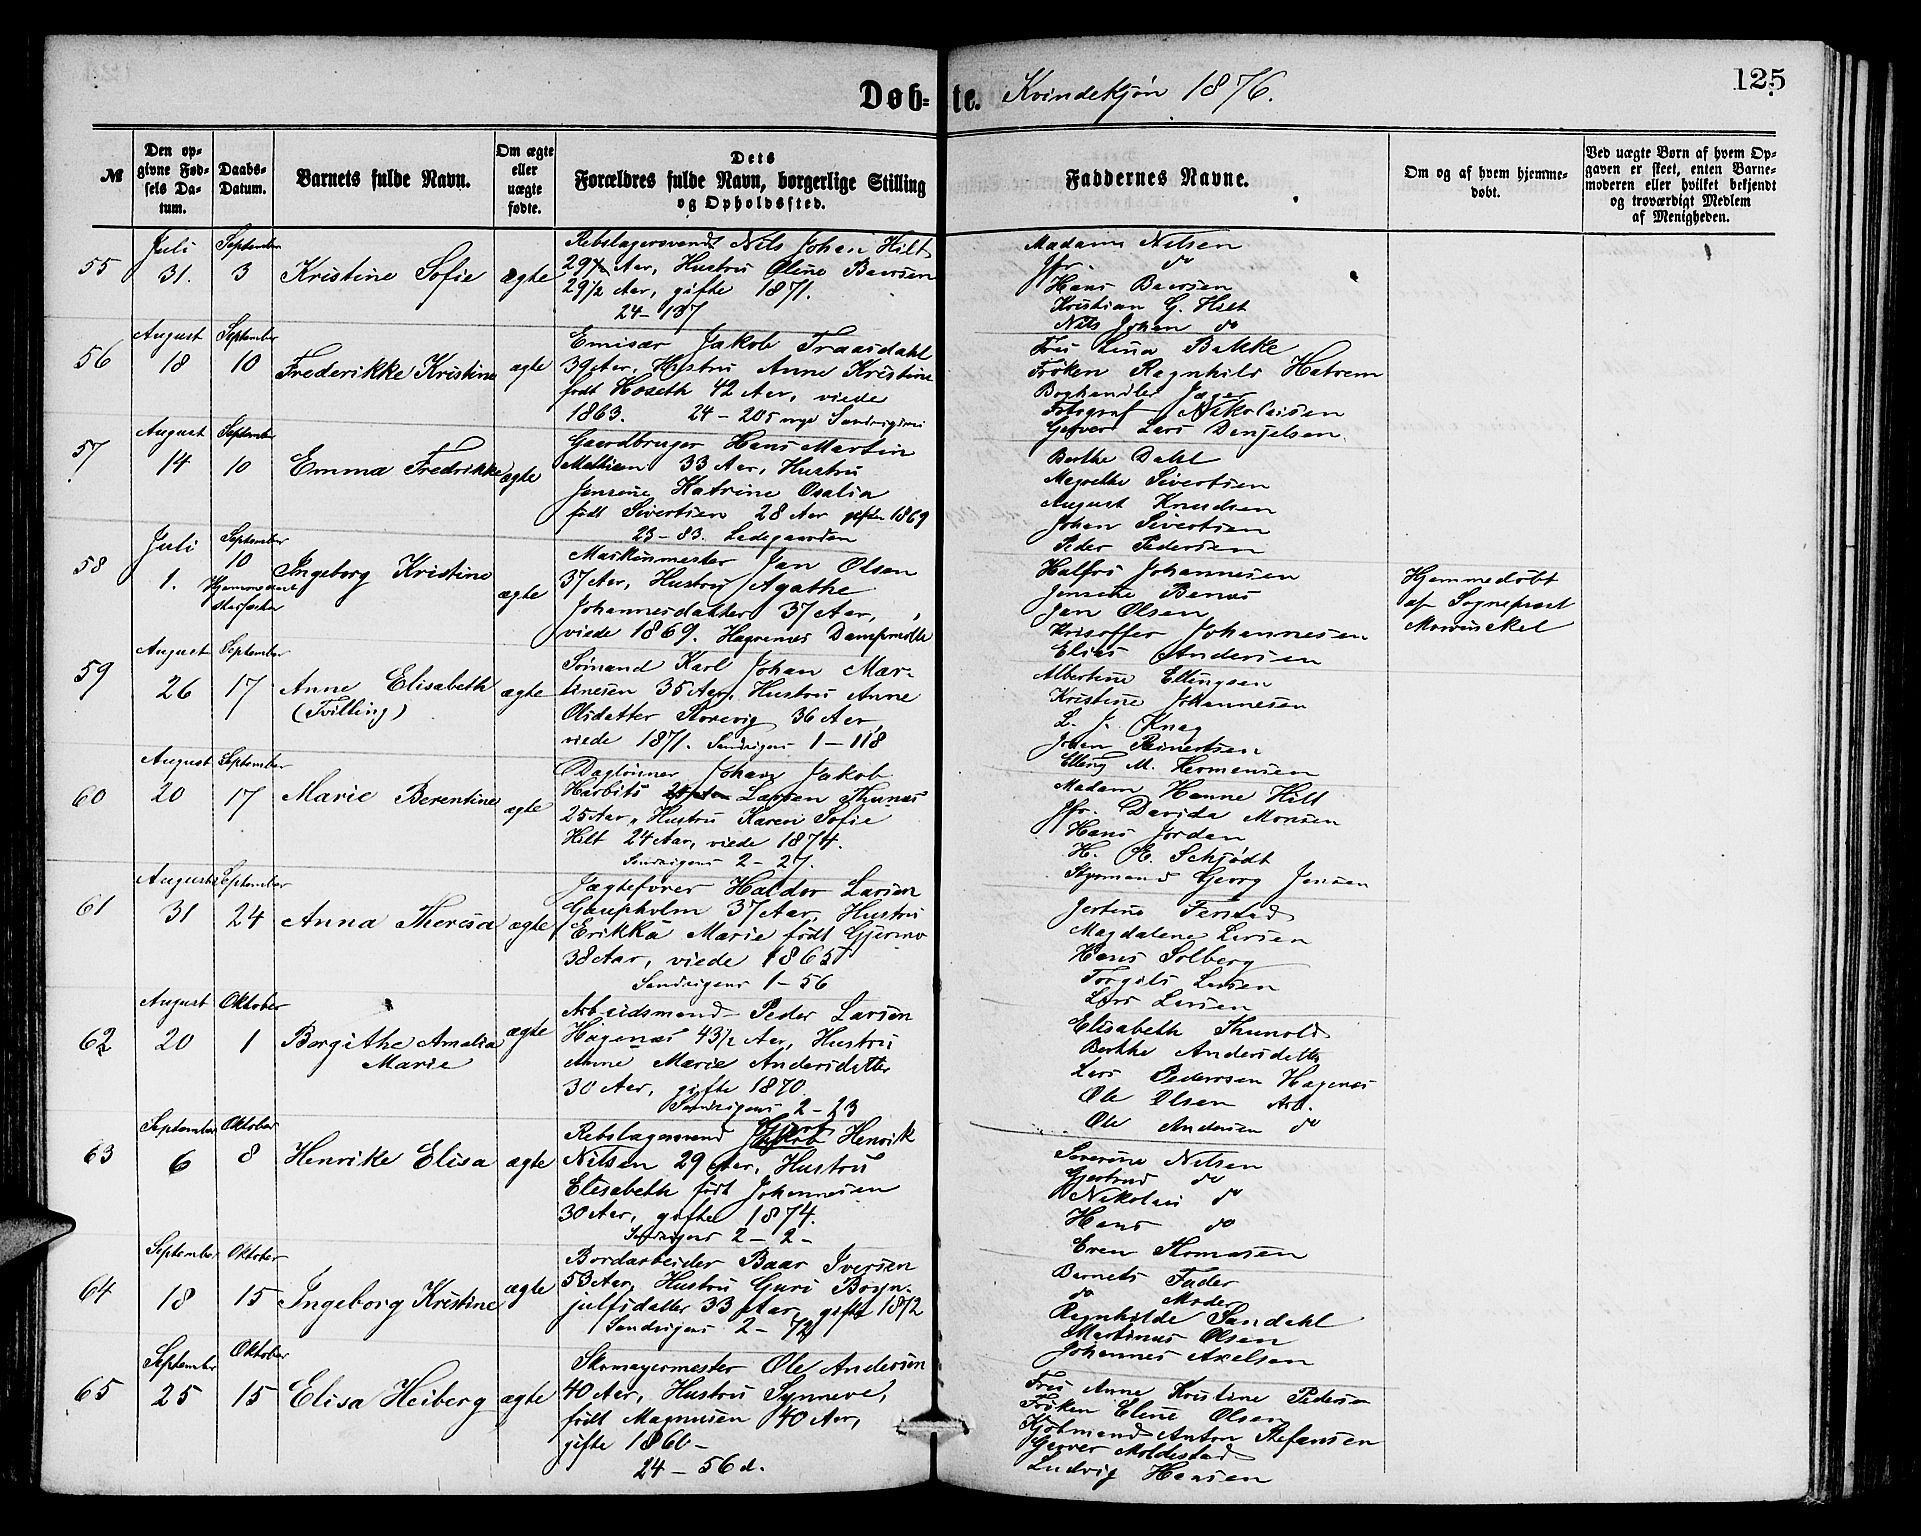 Døb-te. Kvindekjøn 1876.
125
№
Den opgivne Fødsels Datum.
Daabs-Datum.
Barnets fulde Navn.
Om ægte eller uægte fødte.
Dets Forældres fulde Navn, borgerlige Stilling og Opholdssted.
Faddernes Navne.
Om og af hvem hjemmedøbt.
Ved uægte Børn af hvem Opgaven er skeet, enten Barnemoderen eller hvilket bekjendt og troværdigt Medlem af Menigheden.
55
Juli 31.
September 3
Kristine Sofie
ægte
Rebslagersvend Nils Johan Hilt
29½ Aar, Hustru Oline Baarsen
29½ Aar, gifte 1871.
24-137
Madame Nilsen
Jfr. do
Hans Baarsen
Kristian G. Hilt
Nils Johan do
56
August 18
September 10
Frederikke Kristine
ægte
Emisær Jakob Traasdahl
39 Aar, Hustru Anne Kristine
født Hoseth 42 Aar, viede
1863. 24-205
Fru Lina Bakke
Frøken Ragnhild Hatrem
Boghandler Jæger
Fotograf Nikolaisen
Garver Lars Danjelsen.
57
August 14
September 10
Emma Fredrikke
ægte
Gaardbruger Hans Martin
Mathisen 33 Aar, Hustru
Jensine Katrine Osalia
født Sivertsen 28 Aar gifte 1869
23-83. Ladegaarden
Berthe Dahl
Magrethe Sivertsen
August Knudsen
Johan Sivertsen
Peder Pedersen
58
Juli 1.
September 10
Ingeborg Kristine
ægte
Maskinmester Jan Olsen
37 Aar, Hustru Agathe
Johannesdatter 37 Aar,
viede 1869. Hagrenæs Dampmølle
Halfrid Johannesen
Jensine Benæs
Jan Olsen
Krisoffer Johannesen
Elias Andersen
Hjemmedøbt
af Sogneprest
Mowinckel
59
August 26
September 17
Anne Elisabeth
(Tvilling)
ægte
Sømand Karl Johan Mar-
tinesen 35 Aar, Hustru Anne
Olsdatter Storevig 36 Aar,
viede 1871. Sandvigens 1-118
Albertine Ellingsen
Kristine Johannesen
L. J. Knag
Johan Reinertsen
Elling M. Hermensen
60
August 20
September 17
Marie Berentine
ægte
Daglønner Johan Jakob
Harbits Larsen Thunæs
25 Aar, Hustru Karen Sofie
Hilt 24 Aar, viede 1874.
Sandvigens 2-27.
Madam Hanne Hilt
Jfr. Davida Monsen
Hans Jordan
H. A. Schjødt
Styrmand Georg Jensen
61
August 31
September 24
Anna Theresa
ægte
Jægtefører Haldor Larsen
Gaupholm 37 Aar, Hustru
Erikka Marie født Gjermo
38 Aar, viede 1865
Sandvigens 1-56
Jertine Ferstad
Magdalene Larsen
Hans Solberg
Torgils Larsen
Lars Larsen
62
August 20
Oktober 1
Borgithe Amalia
Marie
ægte
Arbeidsmand Peder Larsen
Hagenæs 43½ Aar, Hustru
Anne Marie Andersdatter
30 Aar, gifte 1870.
Sandvigens 2-23
Elisabeth Thunold
Berthe Andersdatter
Lars Pedersen Hagenæs
Ole Olsen Arb.
Ole Andersen do
63
September 6
Oktober 8
Henrike Elisa
ægte
Rebslagersvend Henrik
Nilsen 29 Aar, Hustru
Elisabeth født Johannesen
30 Aar, gifte 1874.
Sandvigens 2-2-
Severine Nilsen
Gjertrud do
Nikolai do
Hans do
Even Thomasen
64
September 18
Oktober 15
Ingeborg Kristine
ægte
Bordarbeider Baar Iversen
53 Aar, Hustru Guri Bryn-
julfsdatter 33 Aar, gifte 1872
Sandvigens 2-72
Barnets Fader
do Moder
Ragnhilde Sandahl
Martinus Olsen
Johannes Axelsen
65
September 25
Oktober 15
Elisa Heiberg
ægte
Skomagermester Ole Andersen
40 Aar, Hustru Synneve,
født Magnusen 40 Aar,
gifte 1860-
24-56d.
Fru Anne Kristine Pedersen
Frøken Eline Olsen
Kjøbmand Anton Stefansen
Garver Moldestad
Ludvig Hansen